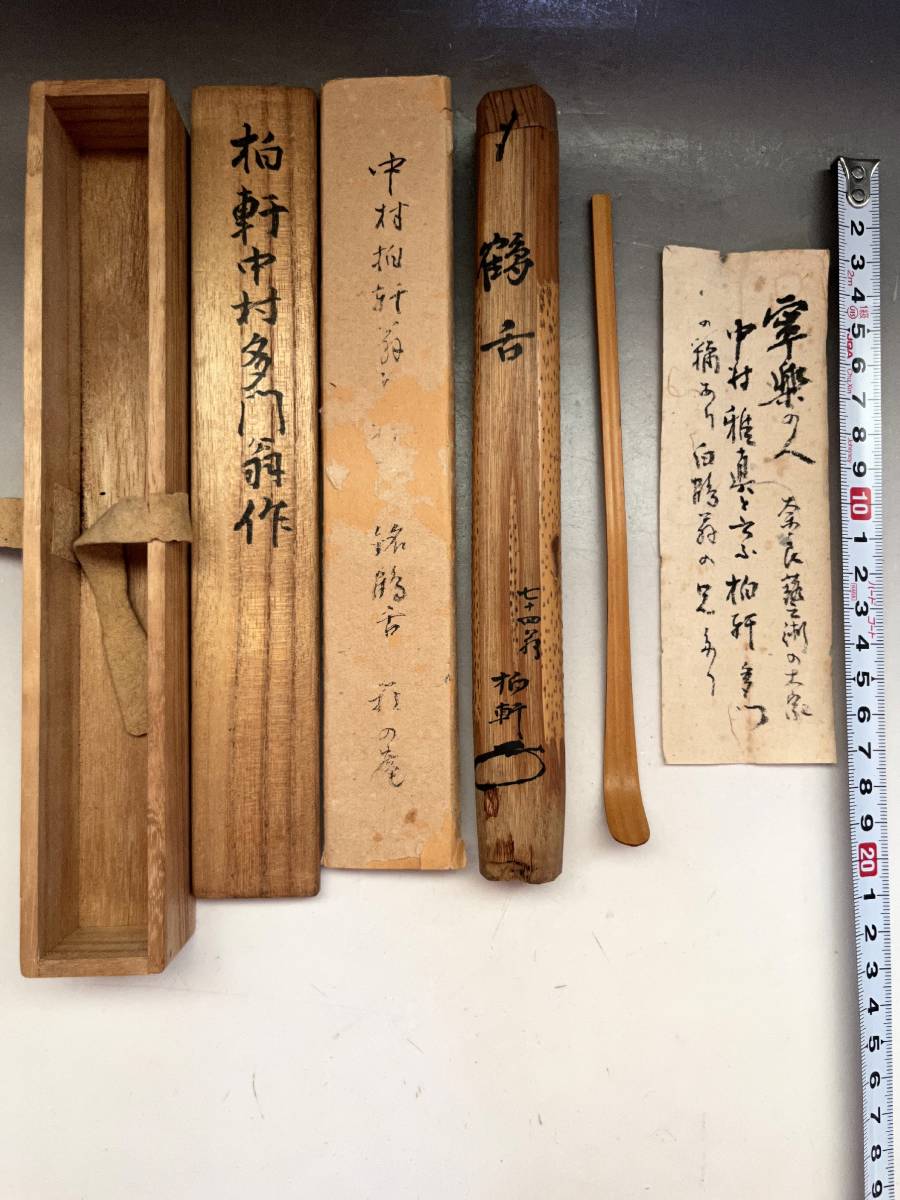 柏軒中村多門翁作
中村柏軒翁
銘鶴舌
の庵
鶴舌
七十四翁
柏軒
寧樂の人
奈良藝術の大家
中村雅真と云ふ柏軒多門
の稱あり白鶴翁の兄なり
2 3 4 5 6 7 8 9 10 1 2 3 4 5 6 7 8 9 20 1 2 3 4 5 6 7 8 9
2m
JQA